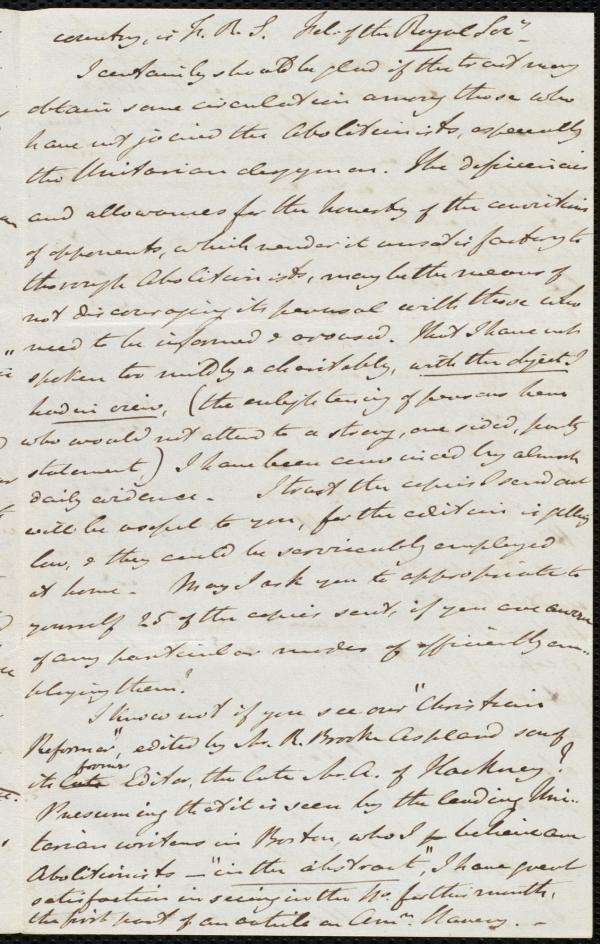 country, is F. R. S. Fel. of the Royal Socy.
I certainly should be glad if the tract may
obtain some circulation among those who
have not joined the Abolitionists, especially
the Unitarian clergymen. The deficiencies
and allowances for the honesty of the convictions
of opponents, which render it unsatisfactory to
thorough Abolitionists, may be the means of
not discouraging its perusal with those who
need to be informed & aroused. That I have not
spoken too mildly & charitably, with the object I
had in view, (the enlightening of persons here
who would not attend to a strong, one sided, party
statement) I have been convinced by almost
daily evidence. I trust the copies I send out
will be useful to you, for the edition is getting
low, & they could be serviceably employed
at home. May I ask you to appropriate to
yourself 25 of the copies sent, if you are aware
of any particular modes of efficiently em-
ploying them?
I know not if you see our "Christian
Reformer", edited by Mr. R. Brook Aspland son of
its former Editor, the late Mr. A. of Hackney?
Presuming that it is seen by the leading Uni-
tarian writers in Boston, who I believe are
Abolitionists — "in the abstract", I have great
satisfaction in seeing in the No. for this month,
the first part of an article on Amn. Slavery. —